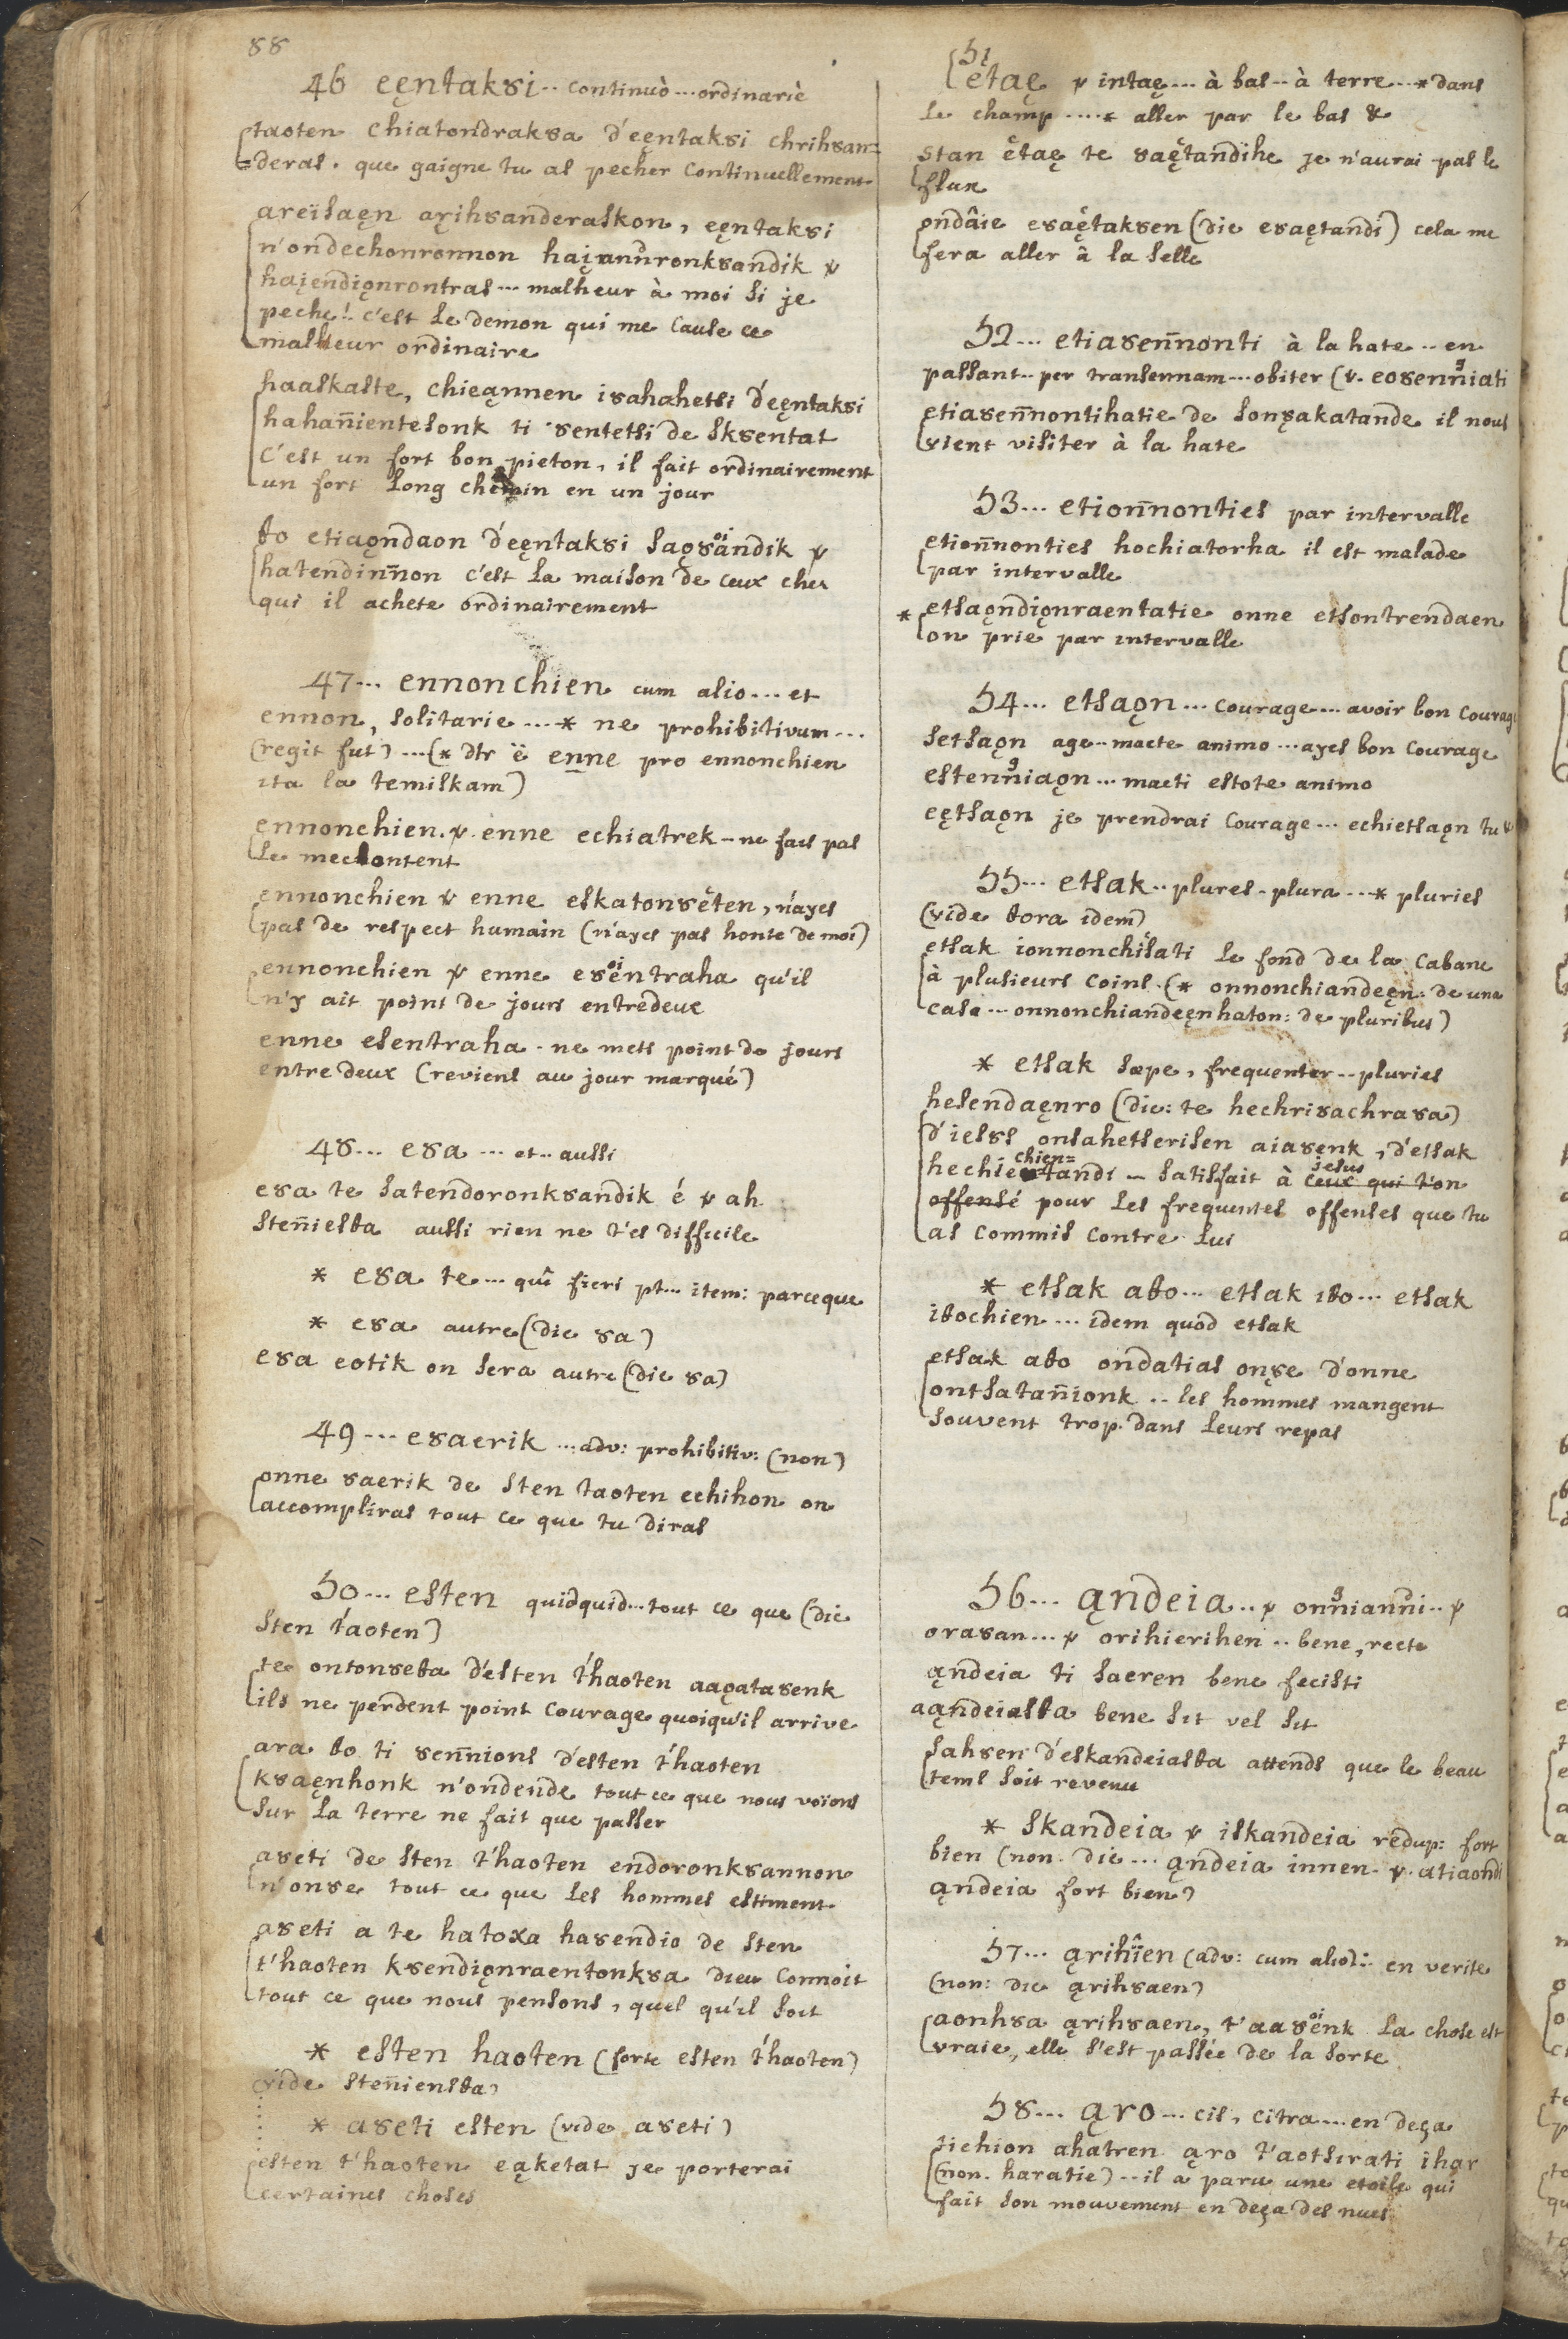 88
46 eęntaksi.. continuò...ordinariè
taoten chiatondraksa d'eęntaksi chrihsan=
=deras. que gaigne tu as pecher continuellement
areïsaęn aŗihsanderaskon, eęntaksi
n'ondechonronnon
hajendiǫnrontras... malheur à moi si je
peche! c'est le demon qui me cause ce
malheur ordinaire
haaskaste, chieąnnen isahahetsi d'eęntaksi
hahan̄ientesonk ti sentetsi de sksentat
c'est un fort bon pieton, il fait ordinairement
un fort long chemin en un jour
ȣo etiaǫndaon d'eęntaksi
hatendin̄non c'est la maison de ceux chez
qui il achete ordinairement
47... ennonchien cum alio... et
ennon, solitarie...* ne prohibitivum...
(regit fut)...(* dtr ë enne pro ennonchien
ita la temiskam)
ennonchien. v. enne echiatrek - ne fais pas
le mecontent
ennonchien v enne eskatonsëten, n'ayes
pas de respect humain (n'ayes pas honte de moi)
ennonchien v enne esentraha qu'il
n'y ait point de jours entredeux
enne esentraha. ne mets point de jours
entre deux (reviens au jour marqué)
48... esa... et.. aussi
esa te satendoronksandik é v ah
sten̄iesta aussi rien ne t'es difficile
* esa te... quî fieri pt... item: parceque
* esa autre (dic sa)
esa eotik on sera autre (dic sa)
49... esaerik ...adv: prohibitiv: (non)
onne saerik de sten taoten echihon on
accompliras tout ce que tu diras
50... esten quidquid...tout ce que (dic
sten t'aoten)
te ontonseta d'esten t'haoten aaǫatasenk
ils ne perdent point courage quoiqu'il arrive
ara ȣo ti sen̄nions d'esten t'haoten
ksaęnhonk n'ondende tout ce que nous voïons
sur la terre ne fait que passer
aseti de sten t'haoten endoronksannon
n'onse tout ce que les hommes estiment
aseti a te hatoxa hasendio de sten
t'haoten ksendiǫnraentonksa dieu connoit
tout ce que nous pensons, quel qu'il soit
* esten haoten (forte esten t'haoten)
vide sten̄iensta)
* aseti esten (vide aseti)
esten t'haoten eąketat je porterai
certaines choses
51
ëtaę v intaę... à bas.. à terre...* dans
le champ....* aller par le bas &
stan ëtaę te saętandihe je n'aurai pas le
flux
ondâie esaętaksen (dic esaętandi) cela me
fera aller à la selle
52... etiasen̄nonti à la hate.. en
passant.. per transennam... obiter (v. eosenniati
etiasen̄nontihatie de sonsakatande il nous
vient visiter à la hate
53... etion̄nonties par intervalle
etion̄nonties hochiatorha il est malade
par intervalle
* etsaǫndiǫnraentatie onne etsontrendaen
on prie par intervalle
54... etsaǫn... courage... avoir bon courage
setsaǫn age.. macte animo... ayes bon courage
estenniaǫn... macti estote animo
eętsaǫn je prendrai courage... echietsaǫn tu &
55... etsak.. plures. plura...* pluries
(vide ȣora idem)
etsak ionnonchisati le fond de la cabane
à plusieurs coins. (* onnonchiandeęn: de una
casa... onnonchiandeęnhaton: de pluribus)
* etsak sæpe, frequenter.. pluries
hesendaęnro (dic: te hechrisachrasa)
d'iesȣs onsahetserisen aiasenk, d'etsak
chien=
hechietandi - satisfait à ceux qui t'on
jesus
offensé pour les frequentes offenses que tu
as commis contre lui
* etsak aȣo... etsak iȣo... etsak
iȣochien... idem quod etsak
etsak aȣo ondatias onse d'onne
ontsatan̄ionk.. les hommes mangent
souvent trop dans leurs repas
56... ąndeia.. v onnianni.. v
orasan... v orihierihen.. bene, recte
ąndeia ti saeren bene fecisti
aąndeiasta bene sit vel fit
sahsen d'eskandeiasta attends que le beau
tems soit revenu
* skandeia v iskandeia redup: fort
bien (non. dic... ąndeia innen. v. atiaondi
ąndeia fort bien)
57... ąrihîen (adv: cum alio): en verite
(non: dic ąrihsaen)
aonhsa ąrihsaen, t'aasenk la chose est
vraie, elle s'est passée de la sorte
58... ąro... cis, citra... en deça
tichion ahatren ąro t'aotsirati ihar
(non. haratie).. il a paru une etoile qui
fait son mouvement en deça des nues